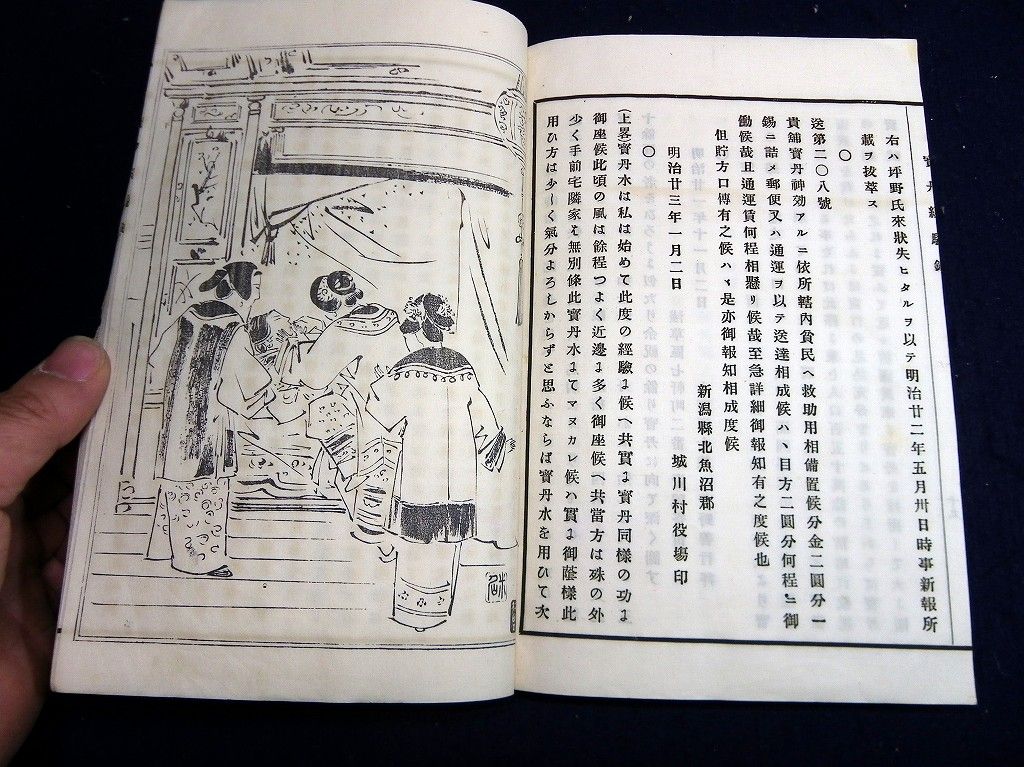 右ハ坪野氏來狀失ヒタルヲ以テ明治廿二年五月卅日時事新報所
載ヲ拔萃ス
〇
送第二〇八號
貴舖寳丹神効アルニ依所轄內貧民ヘ救助用相備置候分金二圓分一
錫ニ詰メ郵便又ハ通運ヲ以テ送達相成候ハヽ目方二圓分何程ニ御
働候哉且通運賃何程相懸リ候哉至急詳細御報知有之度候也
但貯方口傳有之候ハヽ是亦御報知相成度候
新潟縣北魚沼郡
明治廿三年一月二日 城川村役場印
〇
(上畧寳丹水は私は始めて此度の經驗ま候へ共實ま寳丹同樣の功ま
御座候此頃の風は餘程つよく近邊ま多く御座候へ共當方は殊の外
少く手前宅隣家とも無別條此寳丹水まてマヌカレ候ハ實ま御蔭樣此
用ひ方は少ーく氣分よろしからずと思ふならば寳丹水を用ひて次